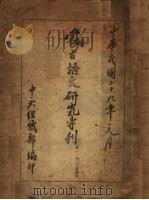 中華民國二十九年元月
蒙古語文研究專刊
中央組織部編印